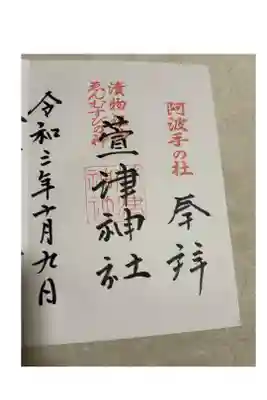 阿波手の杜
奉拝
萱津神社
漬物
ゑんむすひの神
令和三年十月九日